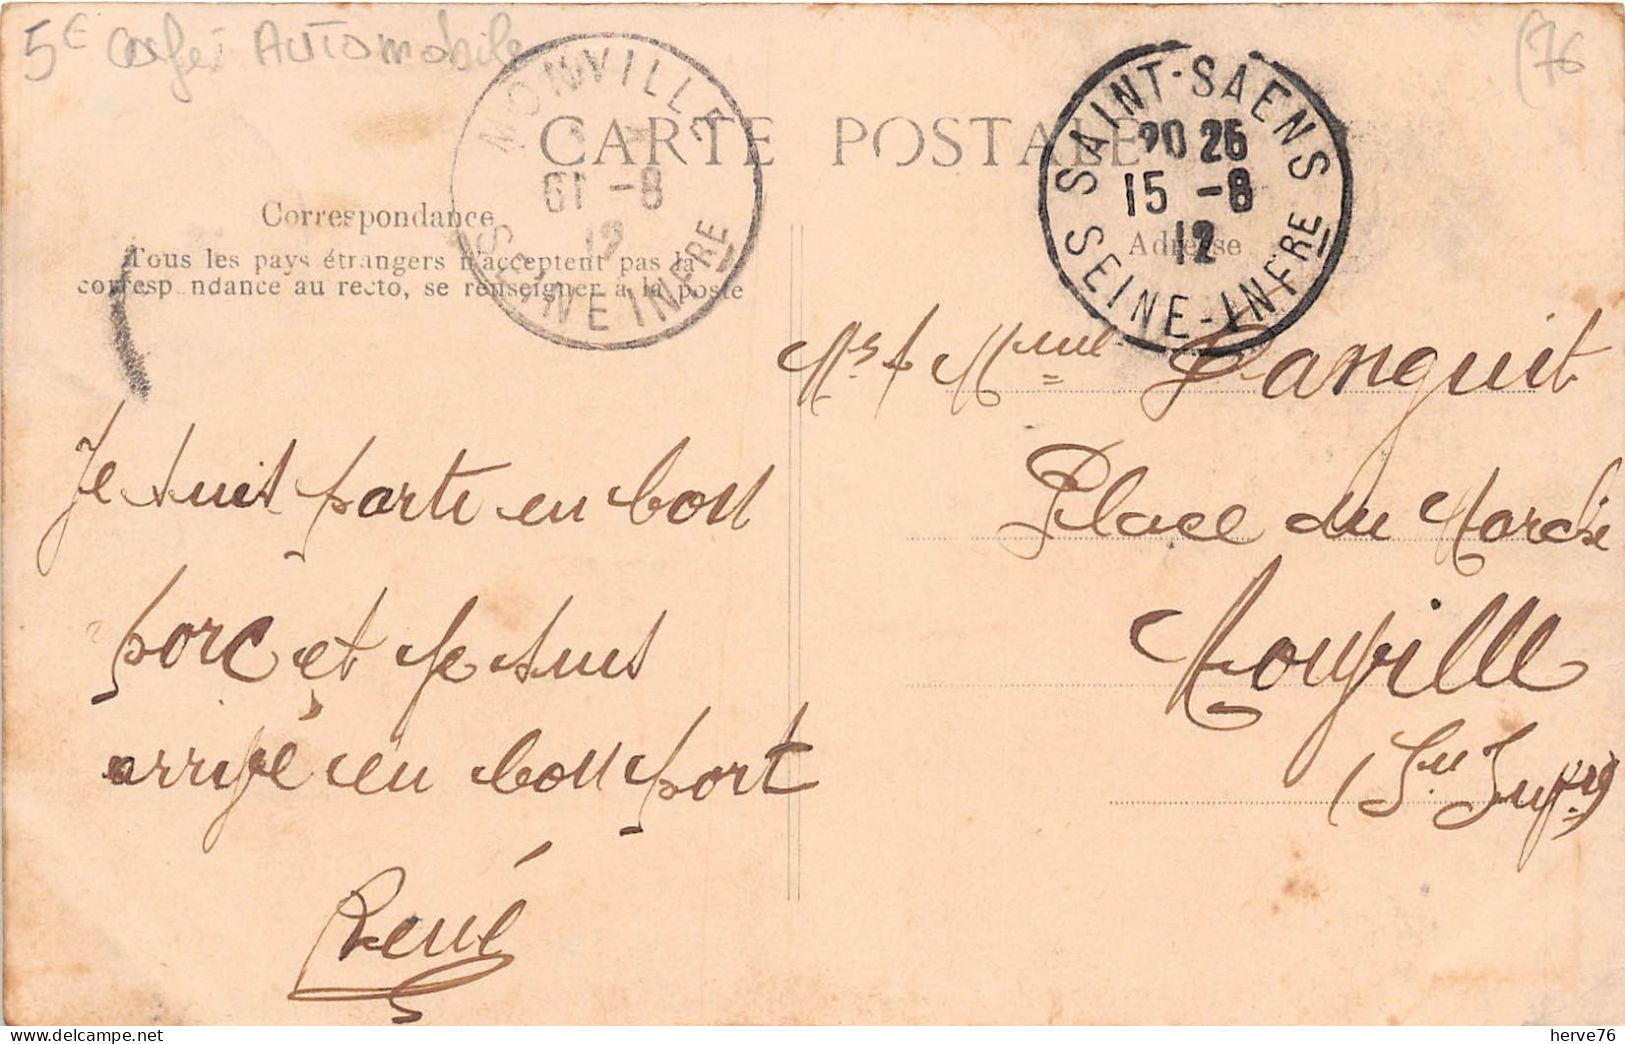 5e Automobile
(76
CARTE POSTALE
MONVILLE
61 -8
12
SEINE INFRE
SAINT-SAENS
20 25
15 -8
12
SEINE-INFRE
Correspondance
Tous les pays étrangers n'acceptent pas la
correspondance au recto, se renseigner à la poste
Adresse
Mr & Mme Tanguit
Place du Marché
Monville
(Se Infre)
Je suis parti en bon
porc et je suis
arrivé en bon port
René
delcampe.net
herve76